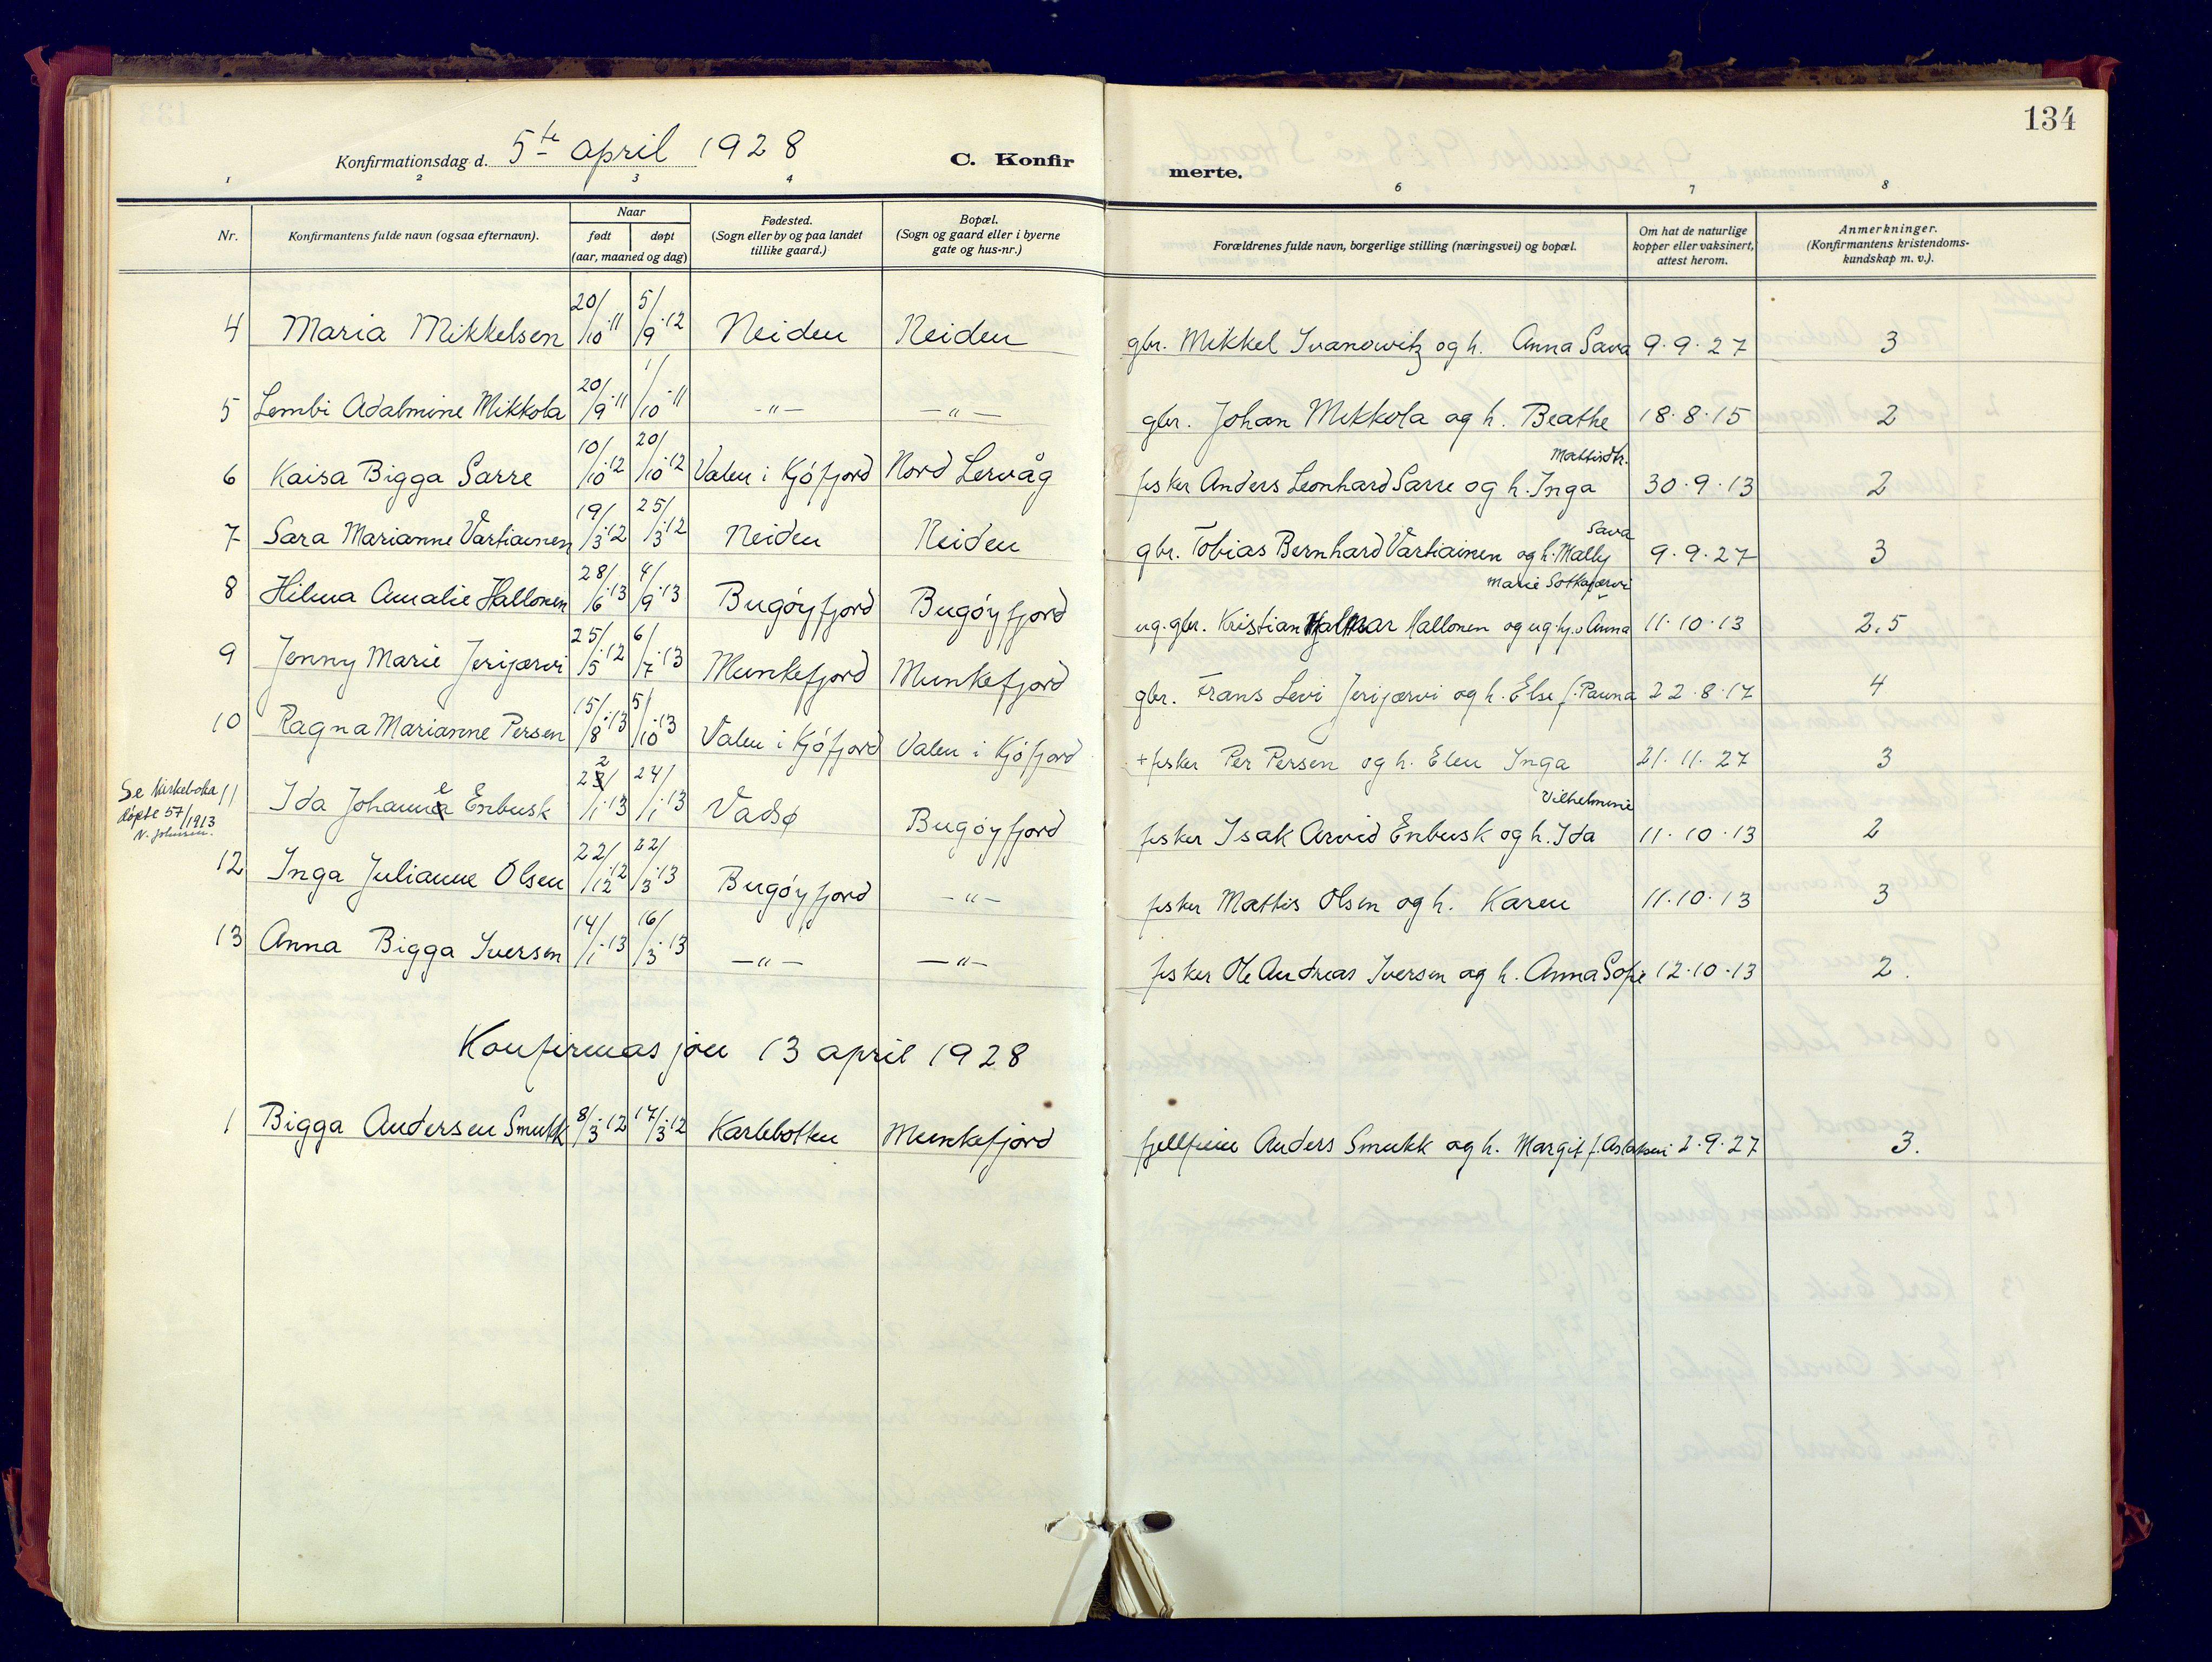 134
Konfirmationsdag d. 5te april 1928 C. Konfir merte.
1 2 3 4 6 7 8
Nr. Konfirmantens fulde navn (ogsaa efternavn). Naar født døpt (aar, maaned og dag) Fødested. (Sogn eller by og paa landet tillike gaard.) Bopæl. (Sogn og gaard eller i byerne gate og hus-nr.) Forældrenes fulde navn, borgerlige stilling (næringsvei) og bopæl. Om hat de naturlige kopper eller vaksinert, attest herom. Anmerkninger. (Konfirmantens kristendoms-kundskap m. v.).
4 Maria Mikkelsen 20/10-11 5/9-12 Neiden Neiden gbr. Mikkel Ivanowitz og h. Anna Sava 9.9.27 3
5 Lembi Adalmine Mikkola 20/9-11 1/10-11 -"- -"- gbr. Johan Mikkola og h. Beathe 18.8.15 2
6 Kaisa Bigga Sarre 10/10-12 20/10-12 Valen i Kjófjord Nord Lervåg fisker Anders Leonhard Sarre og h. Inga Mattisdtr. 30.9.13 2
7 Sara Marianne Vartiainen 19/3-12 25/3-12 Neiden Neiden gbr. Tobias Bernhard Vartiainen og h. Mally Sava 9.9.27 3
8 Hilma Amalie Hallonen 28/6-13 4/9-13 Bugóyfjord Bugóyfjord ug. gbr. Kristian Hjalmar Hallonen og ug. Anna Marie Sotkajærvi 11.10.13 2,5
9 Jenny Marie Jerijærvi 25/5-12 6/7-13 Munkefjord Munkefjord gbr. Frans Levi Jerijærvi og h. Else f. Pauna 22.8.17 4
10 Ragna Marianne Persen 15/8-13 5/10-13 Valen i Kjófjord Valen i Kjófjord + fisker Per Persen og h. Elen Inga 21.11.27 3
Se kirkeboka døpte 57/1913 N. Johnsen.
11 Ida Johanne Enbusk 22/1-13 24/1-13 Vadsø Bugóyfjord fisker Isak Arvid Enbusk og h. Ida Vilhelmine 11.10.13 2
12 Inga Julianne Olsen 22/12-12 22/3-13 Bugóyfjord -"- fisker Mattis Olsen og h. Karen 11.10.13 3
13 Anna Bigga Iversen 14/1-13 16/3-13 -"- -"- fisker Ole Andreas Iversen og h. Anna Sofie 12.10.13 2.
Konfirmasjon 13 april 1928
1 Bigga Andersen Smukk 8/3-12 17/3-12 Karlebotten Munkefjord Anders Smukk og h. Margit f. Aslaksen 2.9.27 3.